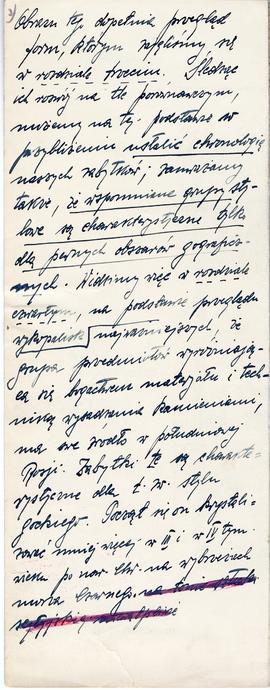 3)
Obrazu tego dopełnia przegląd
form, którym zajęliśmy się
w rozdziale trzecim. Śledząc
ich rozwój na tle porównawczym,
możemy na tej podstawie w
przybliżeniu ustalić chronologię
naszych zabytków i zauważamy
także, że wspomniane grupy sty-
lowe są charakterystyczne tylko
dla pewnych obszarów geograficz-
nych. Widzimy więc w rozdziale
czwartym, na podstawie przeglądu
wykopalisk najważniejszych, że
grupa przedmiotów wyróżniają-
ca się bogactwem materjału i tech-
niką wysadzania kamieniami,
ma swe źródło w południowej
Rosji. Zabytki te są charakte-
rystyczne dla t. zw. stylu
gockiego. Począł się on krystali-
zować mniej więcej w III i w IV tym
wieku po nar. Chr. na wybrzeżach
morza Czarnego.